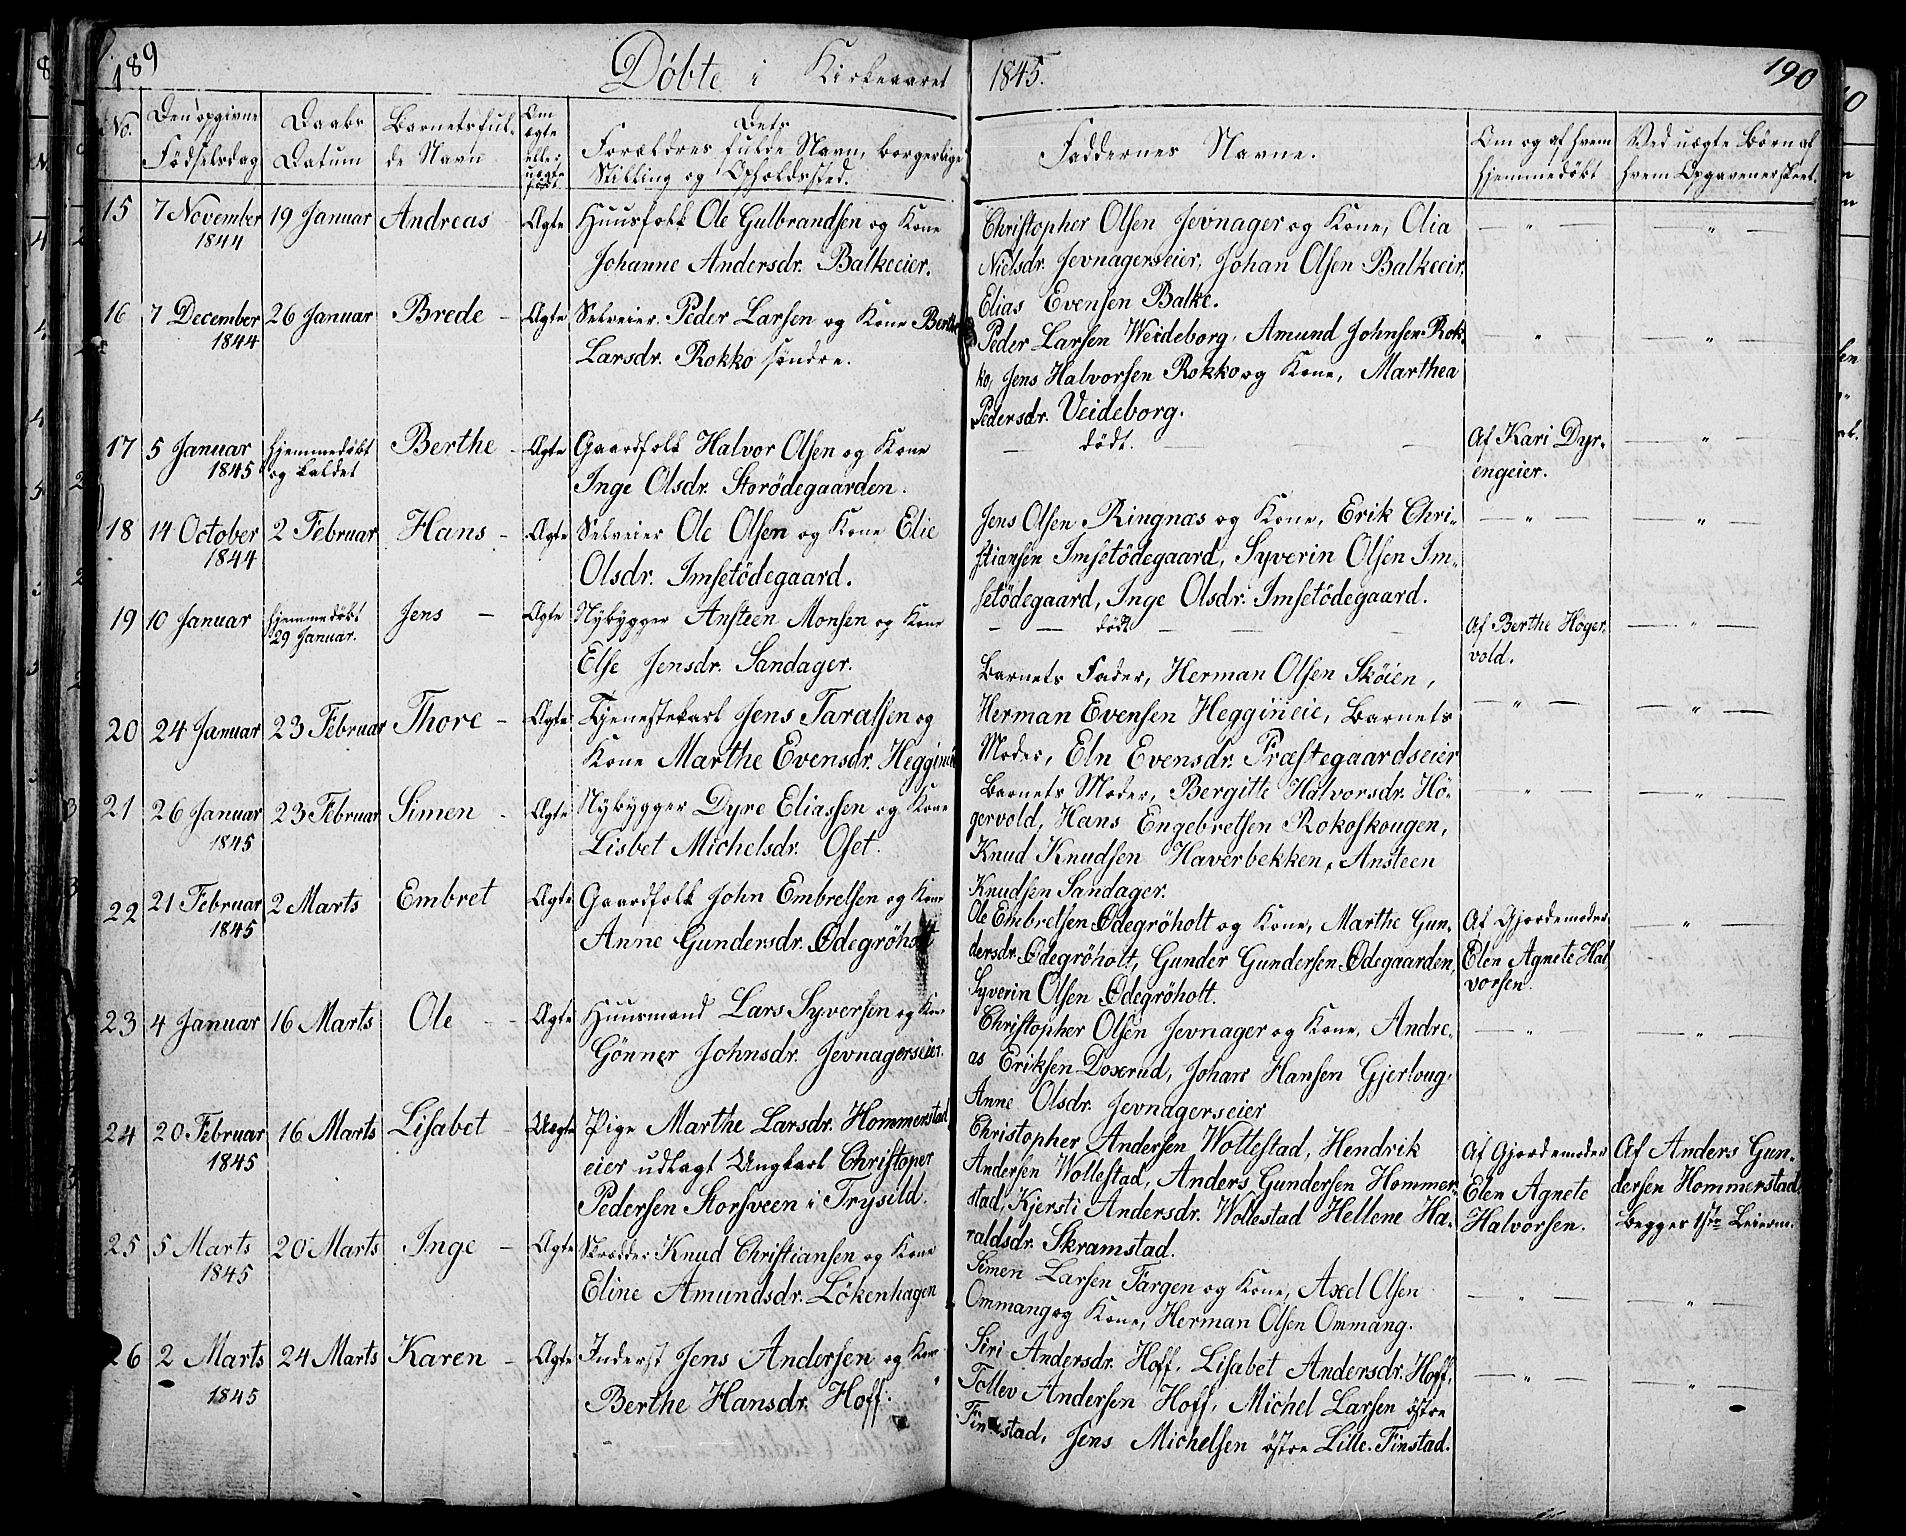 189
Döbte i Kirkeaaret
1845.
190
No.
Den opgivne
Födselsdag
Daabs
Datum
Barnets ful-
de Navn
Om
ægte
eller
uægte
født.
Dets
Forældres fulde Navn, borgerlige
Stilling og Opholdssted.
Faddernes Navne.
Om og af hvem
hjemmedøbt
Ved uægte Børn af
hvem Opgaven er skeet.
15 7 November 19 Januar Andreas Ægte Huusfolk Ole Gulbrandsen og Kone
1844
Johanne Andersdr. Balkeeier.
Christopher Olsen Jevnager og Kone, Olia
Nielsdr. Jevnagerseier, Johan Olsen Balkeeir.
Elias Evensen Balke.
— " — — " —
16 7 December 26 Januar Brede – Ægte Selveier Peder Larsen og Kone Berthe
1844
Larsdr. Rokko söndre.
Peder Larsen Weideborg, Amund Johnsen Rok-
ko, Jens Halvorsen Rokko og Kone, Marthea
Pedersdr. Veideborg.
— " — — " —
17 5 Januar hjemmedøbt Berthe – Ægte Gaardfolk Halvor Olsen og Kone
1845 og kaldet
Inge Olsdr. Storödegaarden.
— død. — — —
Af Kari Dyr-
engeier.
— " —
18 14 October 2 Februar Hans – Ægte Selveier Ole Olsen og Kone Elie
1844
Olsdr. Imsetödegaard.
Jens Olsen Ringnæs og Kone, Erik Chri-
stiansen Imsetödegaard, Syverin Olsen Im-
setödegaard, Inge Olsdr. Imsetödegaard.
— " — — " —
19 10 Januar hjemmedøbt Jens – Ægte Nybygger Ansteen Monsen og Kone
29 Januar.
Else Jensdr. Sandager.
— — død — — —
Af Berthe Höger-
vold.
— " —
20 24 Januar 23 Februar Thore – Ægte Tjenestekarl Jens Taralsen og
Kone Marthe Evensdr. Heggineie
Barnets Fader, Herman Olsen Sköien,
Herman Evensen Heggineie, Barnets
Moder, Eln Evensdr. Præstegaardseier
— " — — " —
21 26 Januar 23 Februar Simen – Ægte Nybygger Dyre Eliassen og Kone
1845
Lisbet Michelsdr. Oset.
Barnets Moder, Bergitte Halvorsdr. Hö-
gervold, Hans Engebretsen Rokoskougen,
Knud Knudsen Haverbekken, Ansteen
Knudsen Sandager.
— " — — " —
22 21 Februar 2 Marts Embret Ægte Gaardfolk John Embretsen og Kone
1845
Anne Gundersdr. Ödegröholt
Ole Embretsen Ödegröholt og Kone, Marthe Gun-
dersdr. Ödegröholt, Gunder Gundersen Ödegaarden,
Syverin Olsen Ödegröholt.
Af Gjordemoder
Elen Agnete Hal
vorsen.
— " —
23 4 Januar 16 Marts Ole – Ægte Huusmand Lars Syversen og Kone
Gönner Johnsdr. Jevnagerseier.
Christopher Olsen Jevnager og Kone, Andre-
as Eriksen Doxrud, Johan Hansen Gjerloug,
Anne Olsdr. Jevnagerseier
— " — — " —
24 20 Februar 16 Marts Lisabet – Uægte Pige Marthe Larsdr. Hommerstad
1845
eier udlagt Ungkarl Christoper
Pedersen Storsveen i Trysild.
Christopher Andersen Wollestad, Hendrik
Andersen Wollestad, Anders Gundersen Hommer-
stad, Kjersti Andersdr. Wollestad Hellene Ha-
raldsdr. Skramstad.
Af Gjordemoder
Elen Agnete
Halvorsen.
Af Anders Gun-
dersen Hommerstad
Begges 1ste Leierm.
25 5 Marts 20 Marts Inge – Ægte Skrædder Knud Christiansen og Kone
1845
Eline Amundsdr. Lökenhagen
Simen Larsen Fargen og Kone, Axel Olsen
Ommang og Kone, Herman Olsen Ommang.
— " — — " —
26 2 Marts 24 Marts Karen – Ægte Inderst Jens Andersen og Kone
1845
Berthe Hansdr. Hoff.
Siri Andersdr. Hoff, Lisabet Andersdr. Hoff,
Tollev Andersen Hoff, Michel Larsen östre
Finstad, Jens Michelsen östre Lille-Finstad.
— " — — " —